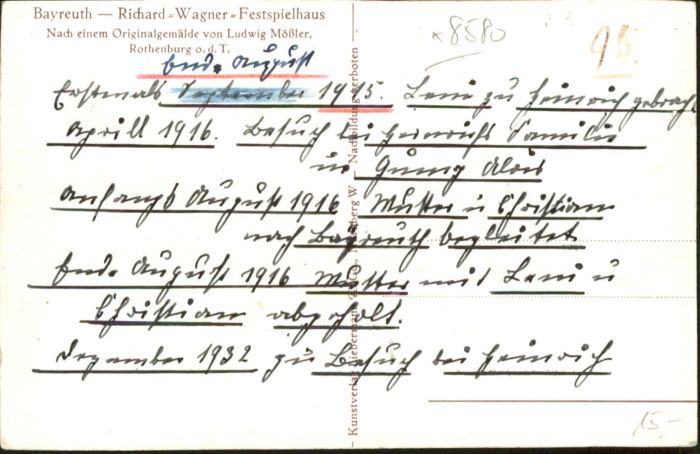 Bayreuth — Richard-Wagner-Festspielhaus
Nach einem Originalgemälde von Ludwig Mößler,
Rothenburg o. d. T.
*8580
95
Ende August
Erstmals September 1915. Leni zu Heinrich gebracht
Aprill 1916. Besuch bei Heinrichs Familie
u Alois
Anfangs August 1916 Mutter u Christian
nach Bayreuth begleitet
Ende August 1916 Mutter mit Leni u
Christian abgeholt.
Dezember 1932 zu Besuch bei Heinrich
— Kunstverlag Liebermann & Co., Nürnberg W — Nachbildung verboten —
15.-